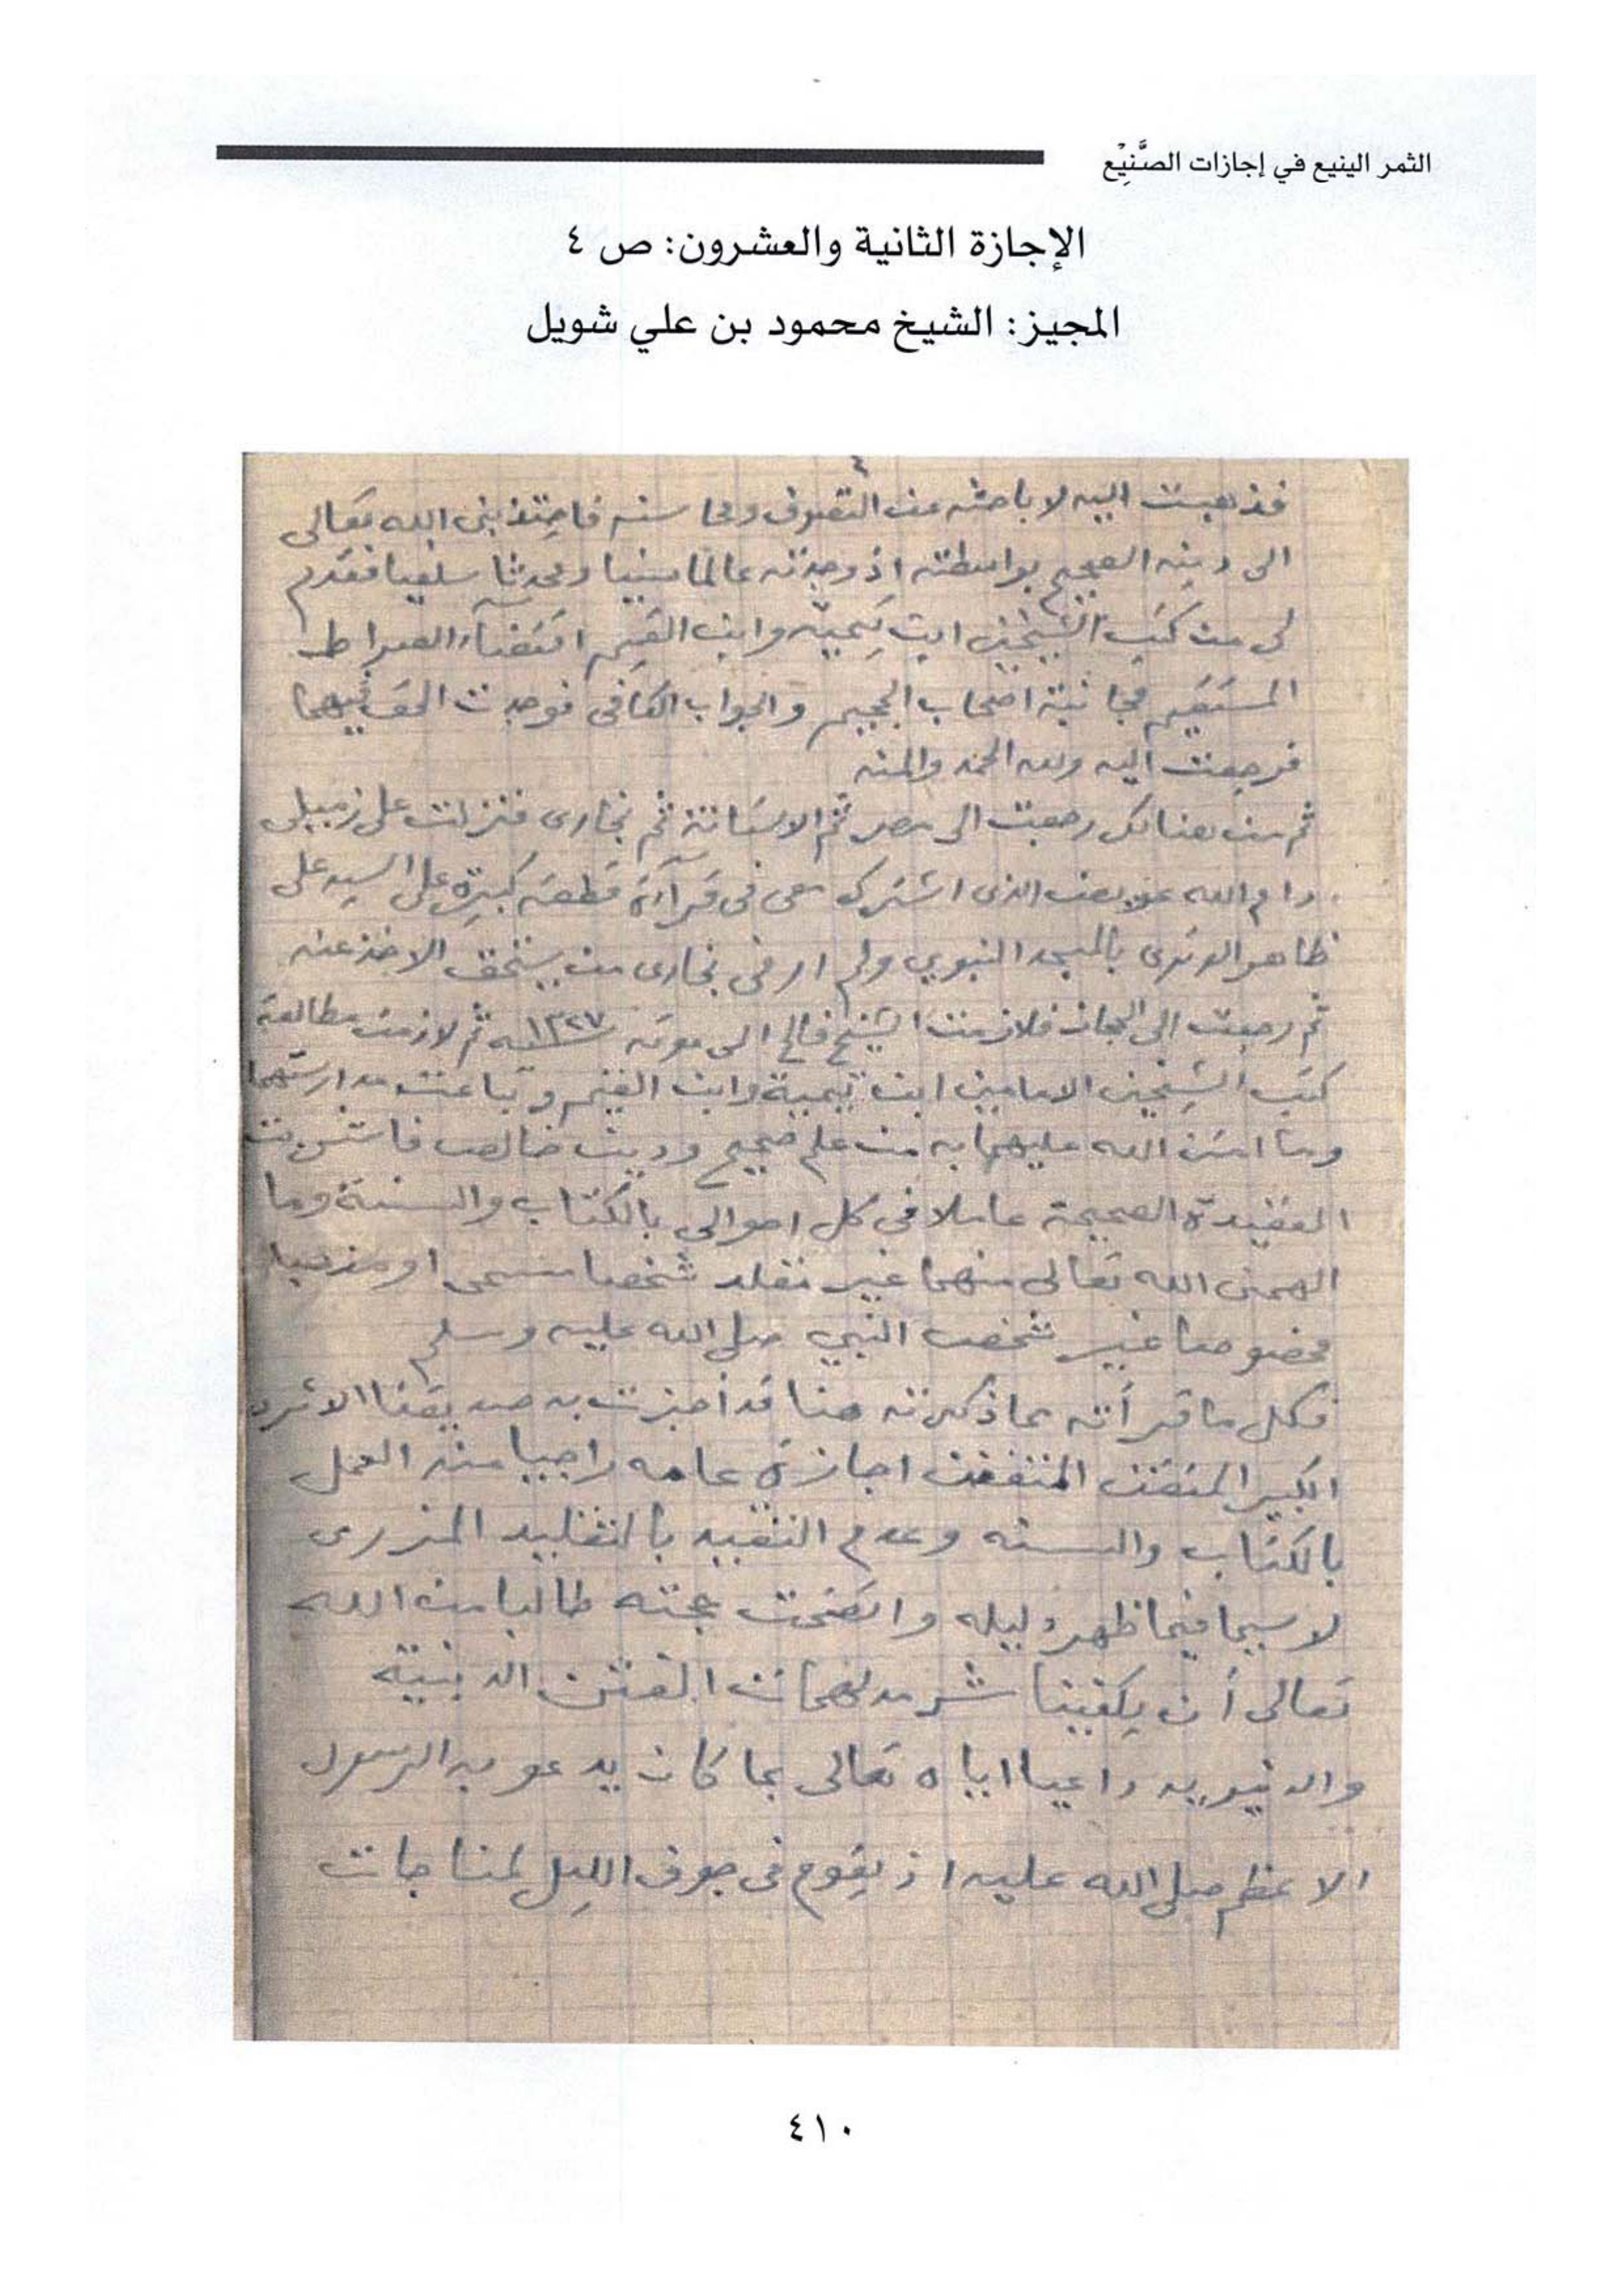 الثمر الينيع في إجازات الصَّنِيْع
الإجازة الثانية والعشرون: ص ٤
المجيز: الشيخ محمود بن علي شويل
٤
فذهبت اليه لا باحثه عن التصوف ومحاسنه فاجتذبنى الله تعالى
الى دينه الصحيح بواسطته اذ وجدته عالما سنيا ومحدثا سلفيا فقدم
لى من كتب الشيخين ابن تيمية وابن القيم اقتضآء الصراط
المستقيم مجانبة اصحاب الجحيم والجواب الكافى فوجدت الحق فيهما
فرجعت اليه ولله الحمد والمنه
ثم من هنالك رجعت الى مصر ثم الاستانة ثم بخارى فنزلت على زميلى
دام الله الذى اشترك معى فى قرآءة قطعه كبيرة على السيد على
ظاهر الوترى بالمسجد النبوي ولم ار فى بخارى من يستحق الاخذ عنه
ثم رجعت الى الحجاز فلازمت الشيخ فالح الى موته ١٣٢٧ ثم لازمت مطالعة
كتب الشيخين الامامين ابن تيمية وابن القيم مدارستهما
وما امتن الله عليهما به من علم صحيح ودين خالص
العقيدة الصحيحة عاملا فى كل احوالى بالكتاب والسنة وما
الهمنى الله تعالى منهما غير مقلد شخصا مسمى او مذهبا
مخصوصا غير شخص النبي صلى الله عليه وسلم
فكل ما قرأته مما ذكرته هنا قد أجزت به صديقنا
الكبير المتقن المتفنن اجازة عامه راجيا منه العمل
بالكتاب والسنه وعدم التقييد بالتقليد المزرى
لا سيما فيما ظهر دليله واتضحت حجته طالبا من الله
تعالى أن يكفينا شر مدلهمات الفتن الدينية
والدنيويه داعيا اياه تعالى بما كان يدعو به الرسول
الاعظم صلى الله عليه اذ يقوم فى جوف الليل لمناجات
٤١٠